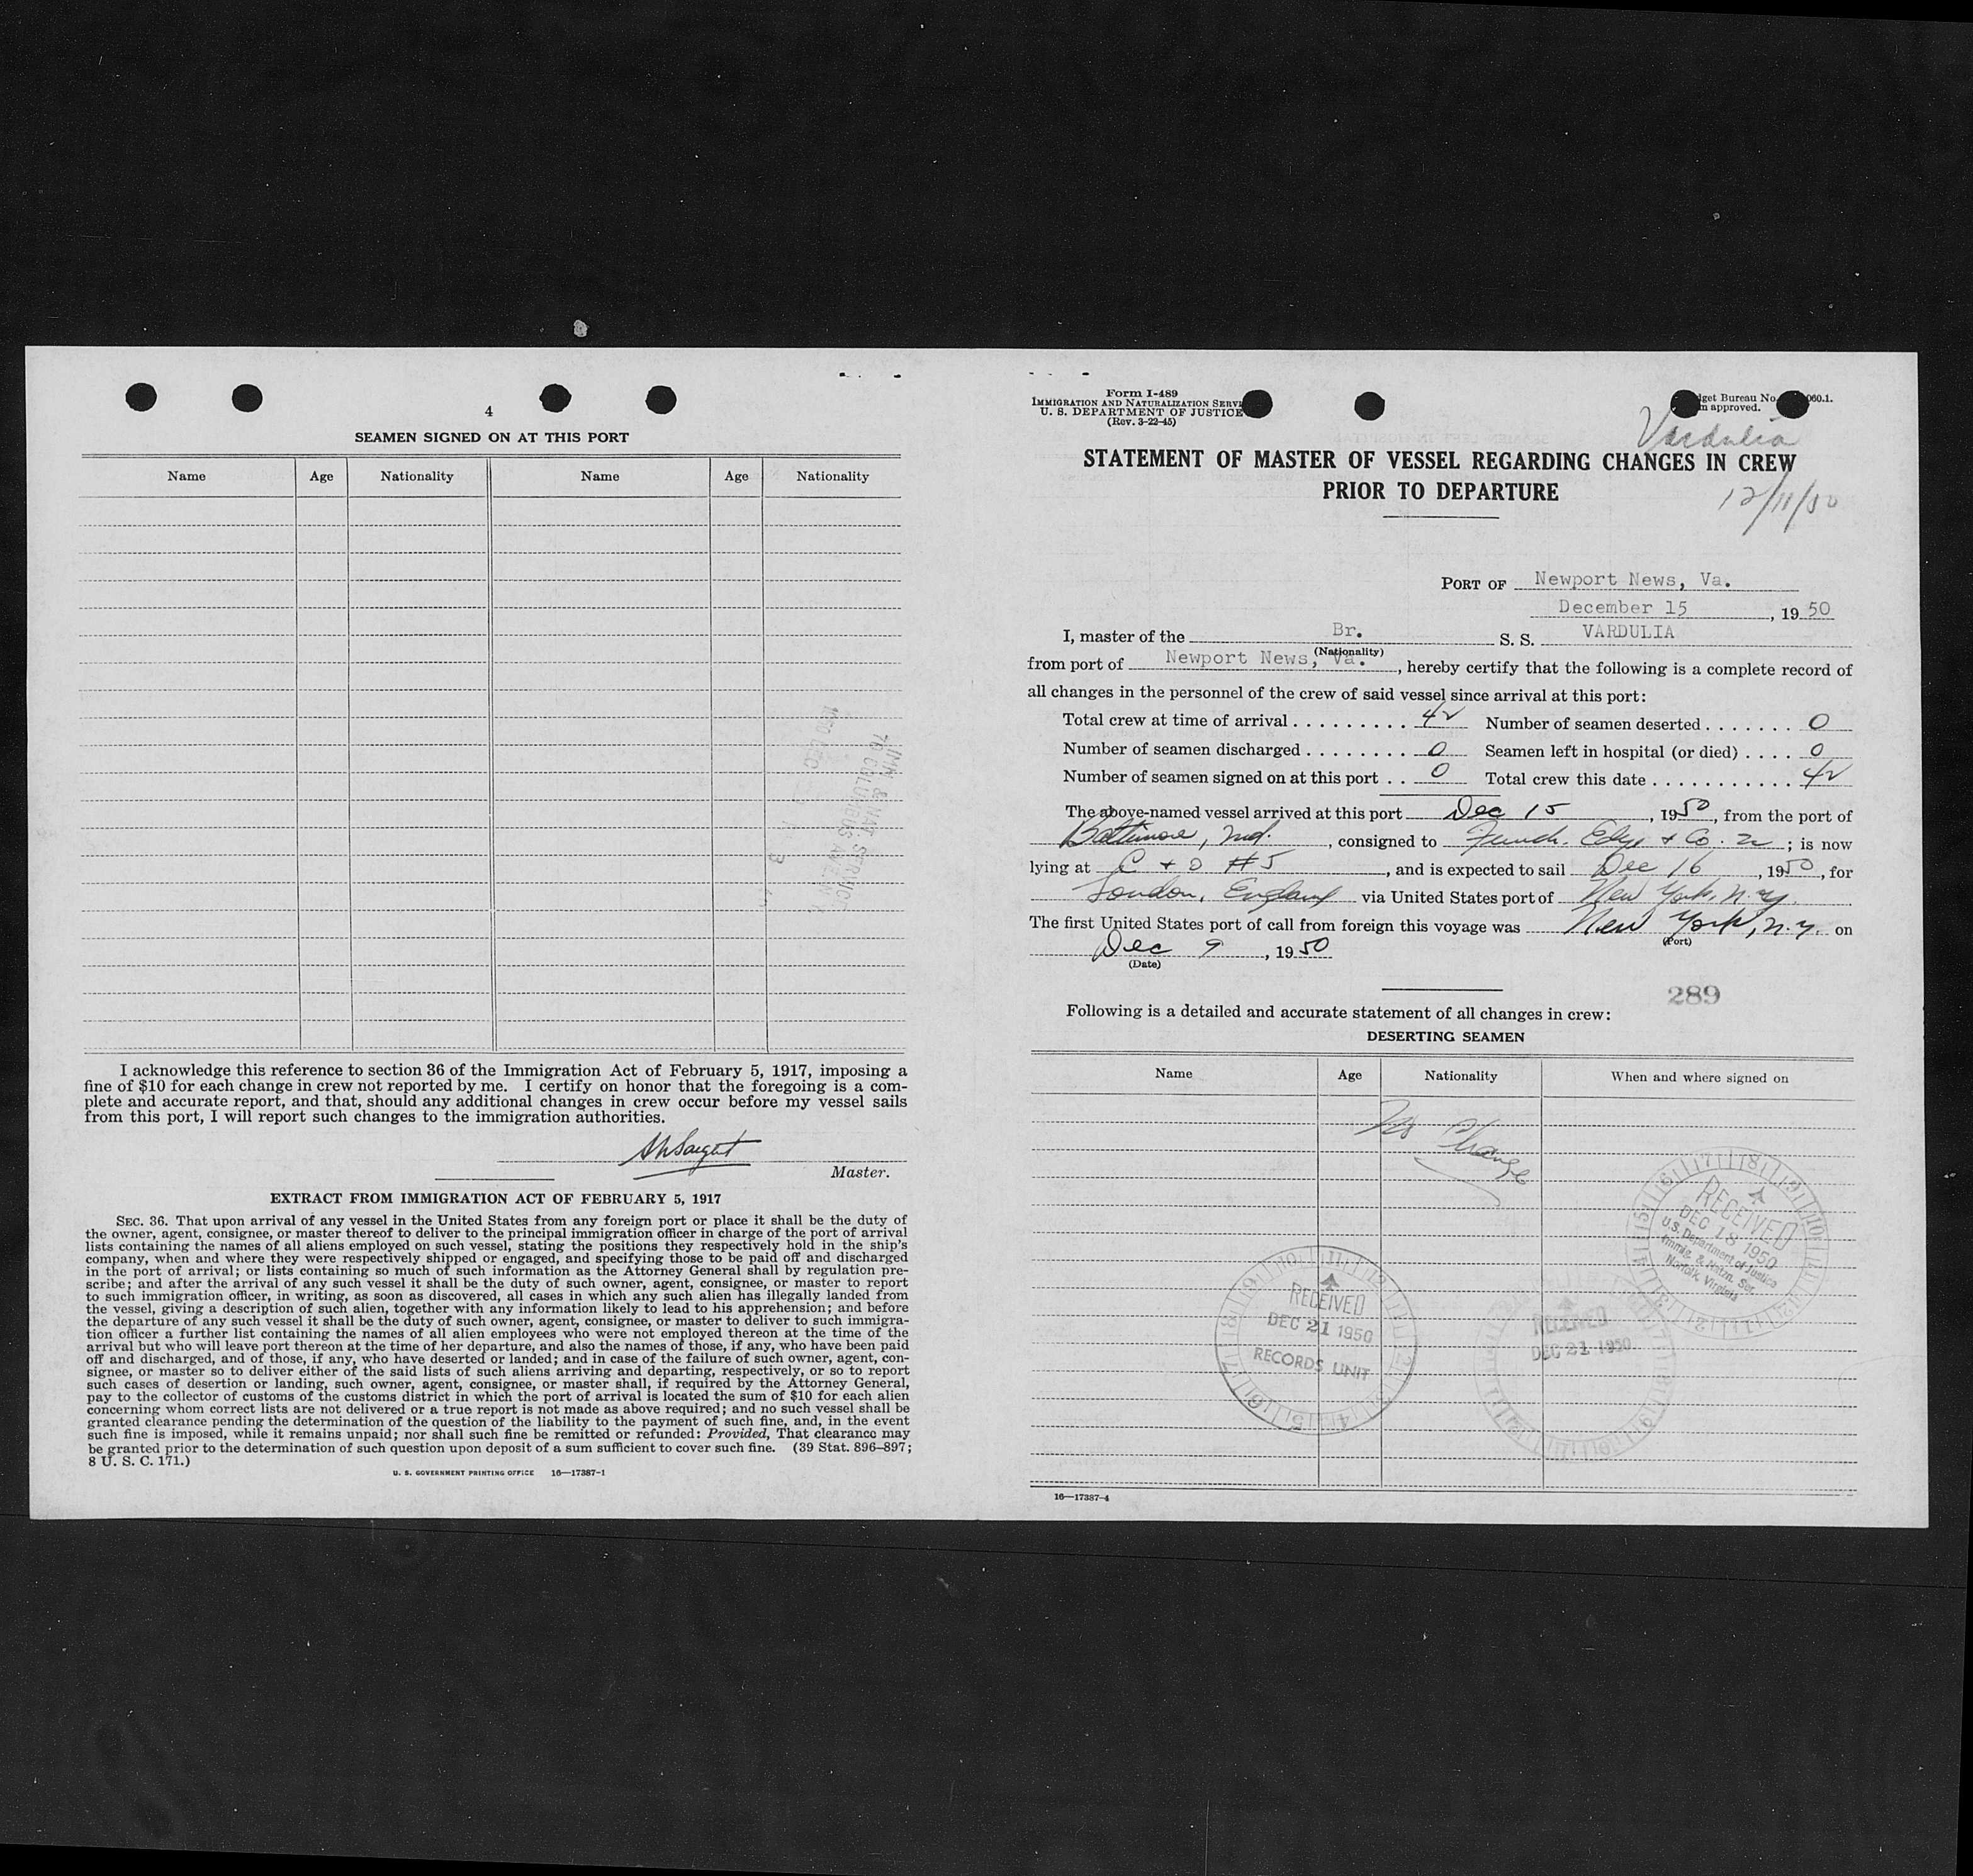 4
SEAMEN SIGNED ON AT THIS PORT
Name Age Nationality Name Age Nationality
1950 DEC
IMM & NAT SERVICE
70 COLUMBUS AVE
I acknowledge this reference to section 36 of the Immigration Act of February 5, 1917, imposing a
fine of $10 for each change in crew not reported by me. I certify on honor that the foregoing is a com-
plete and accurate report, and that, should any additional changes in crew occur before my vessel sails
from this port, I will report such changes to the immigration authorities.
Sargent
Master.
EXTRACT FROM IMMIGRATION ACT OF FEBRUARY 5, 1917
SEC. 36. That upon arrival of any vessel in the United States from any foreign port or place it shall be the duty of
the owner, agent, consignee, or master thereof to deliver to the principal immigration officer in charge of the port of arrival
lists containing the names of all aliens employed on such vessel, stating the positions they respectively hold in the ship's
company, when and where they were respectively shipped or engaged, and specifying those to be paid off and discharged
in the port of arrival; or lists containing so much of such information as the Attorney General shall by regulation pre-
scribe; and after the arrival of any such vessel it shall be the duty of such owner, agent, consignee, or master to report
to such immigration officer, in writing, as soon as discovered, all cases in which any such alien has illegally landed from
the vessel, giving a description of such alien, together with any information likely to lead to his apprehension; and before
the departure of any such vessel it shall be the duty of such owner, agent, consignee, or master to deliver to such immigra-
tion officer a further list containing the names of all alien employees who were not employed thereon at the time of the
arrival but who will leave port thereon at the time of her departure, and also the names of those, if any, who have been paid
off and discharged, and of those, if any, who have deserted or landed; and in case of the failure of such owner, agent, con-
signee, or master so to deliver either of the said lists of such aliens arriving and departing, respectively, or so to report
such cases of desertion or landing, such owner, agent, consignee, or master shall, if required by the Attorney General,
pay to the collector of customs of the customs district in which the port of arrival is located the sum of $10 for each alien
concerning whom correct lists are not delivered or a true report is not made as above required; and no such vessel shall be
granted clearance pending the determination of the question of the liability to the payment of such fine, and, in the event
such fine is imposed, while it remains unpaid; nor shall such fine be remitted or refunded: Provided, That clearance may
be granted prior to the determination of such question upon deposit of a sum sufficient to cover such fine. (39 Stat. 896–897;
8 U. S. C. 171.)
U. S. GOVERNMENT PRINTING OFFICE 16—17387-1
Form I-489
IMMIGRATION AND NATURALIZATION SERVI
U. S. DEPARTMENT OF JUSTICE
(Rev. 3-22-45)
get Bureau No. 060.1.
m approved.
Vardulia
STATEMENT OF MASTER OF VESSEL REGARDING CHANGES IN CREW
PRIOR TO DEPARTURE
12/11/50
PORT OF Newport News, Va.
December 15, 1950
I, master of the Br. S. S. VARDULIA
(Nationality)
from port of Newport News, Va., hereby certify that the following is a complete record of
all changes in the personnel of the crew of said vessel since arrival at this port:
Total crew at time of arrival 42 Number of seamen deserted 0
Number of seamen discharged 0 Seamen left in hospital (or died) 0
Number of seamen signed on at this port 0 Total crew this date 42
The above-named vessel arrived at this port Dec 15, 1950, from the port of
Baltimore, Md., consigned to Funch, Edye & Co.; is now
lying at C + O #5, and is expected to sail Dec 16, 1950, for
London, England via United States port of New York, N.Y.
The first United States port of call from foreign this voyage was New York, N.Y. on
(Port)
Dec 9, 1950
(Date)
289
Following is a detailed and accurate statement of all changes in crew:
DESERTING SEAMEN
Name Age Nationality When and where signed on
No Change
RECEIVED
DEC 18 1950
U.S. Department of Justice
Immig. & Natzn. Ser.
Norfolk, Virginia
RECEIVED
DEC 21 1950
RECORDS UNIT
RECEIVED
DEC 21 1950
16—17387-4